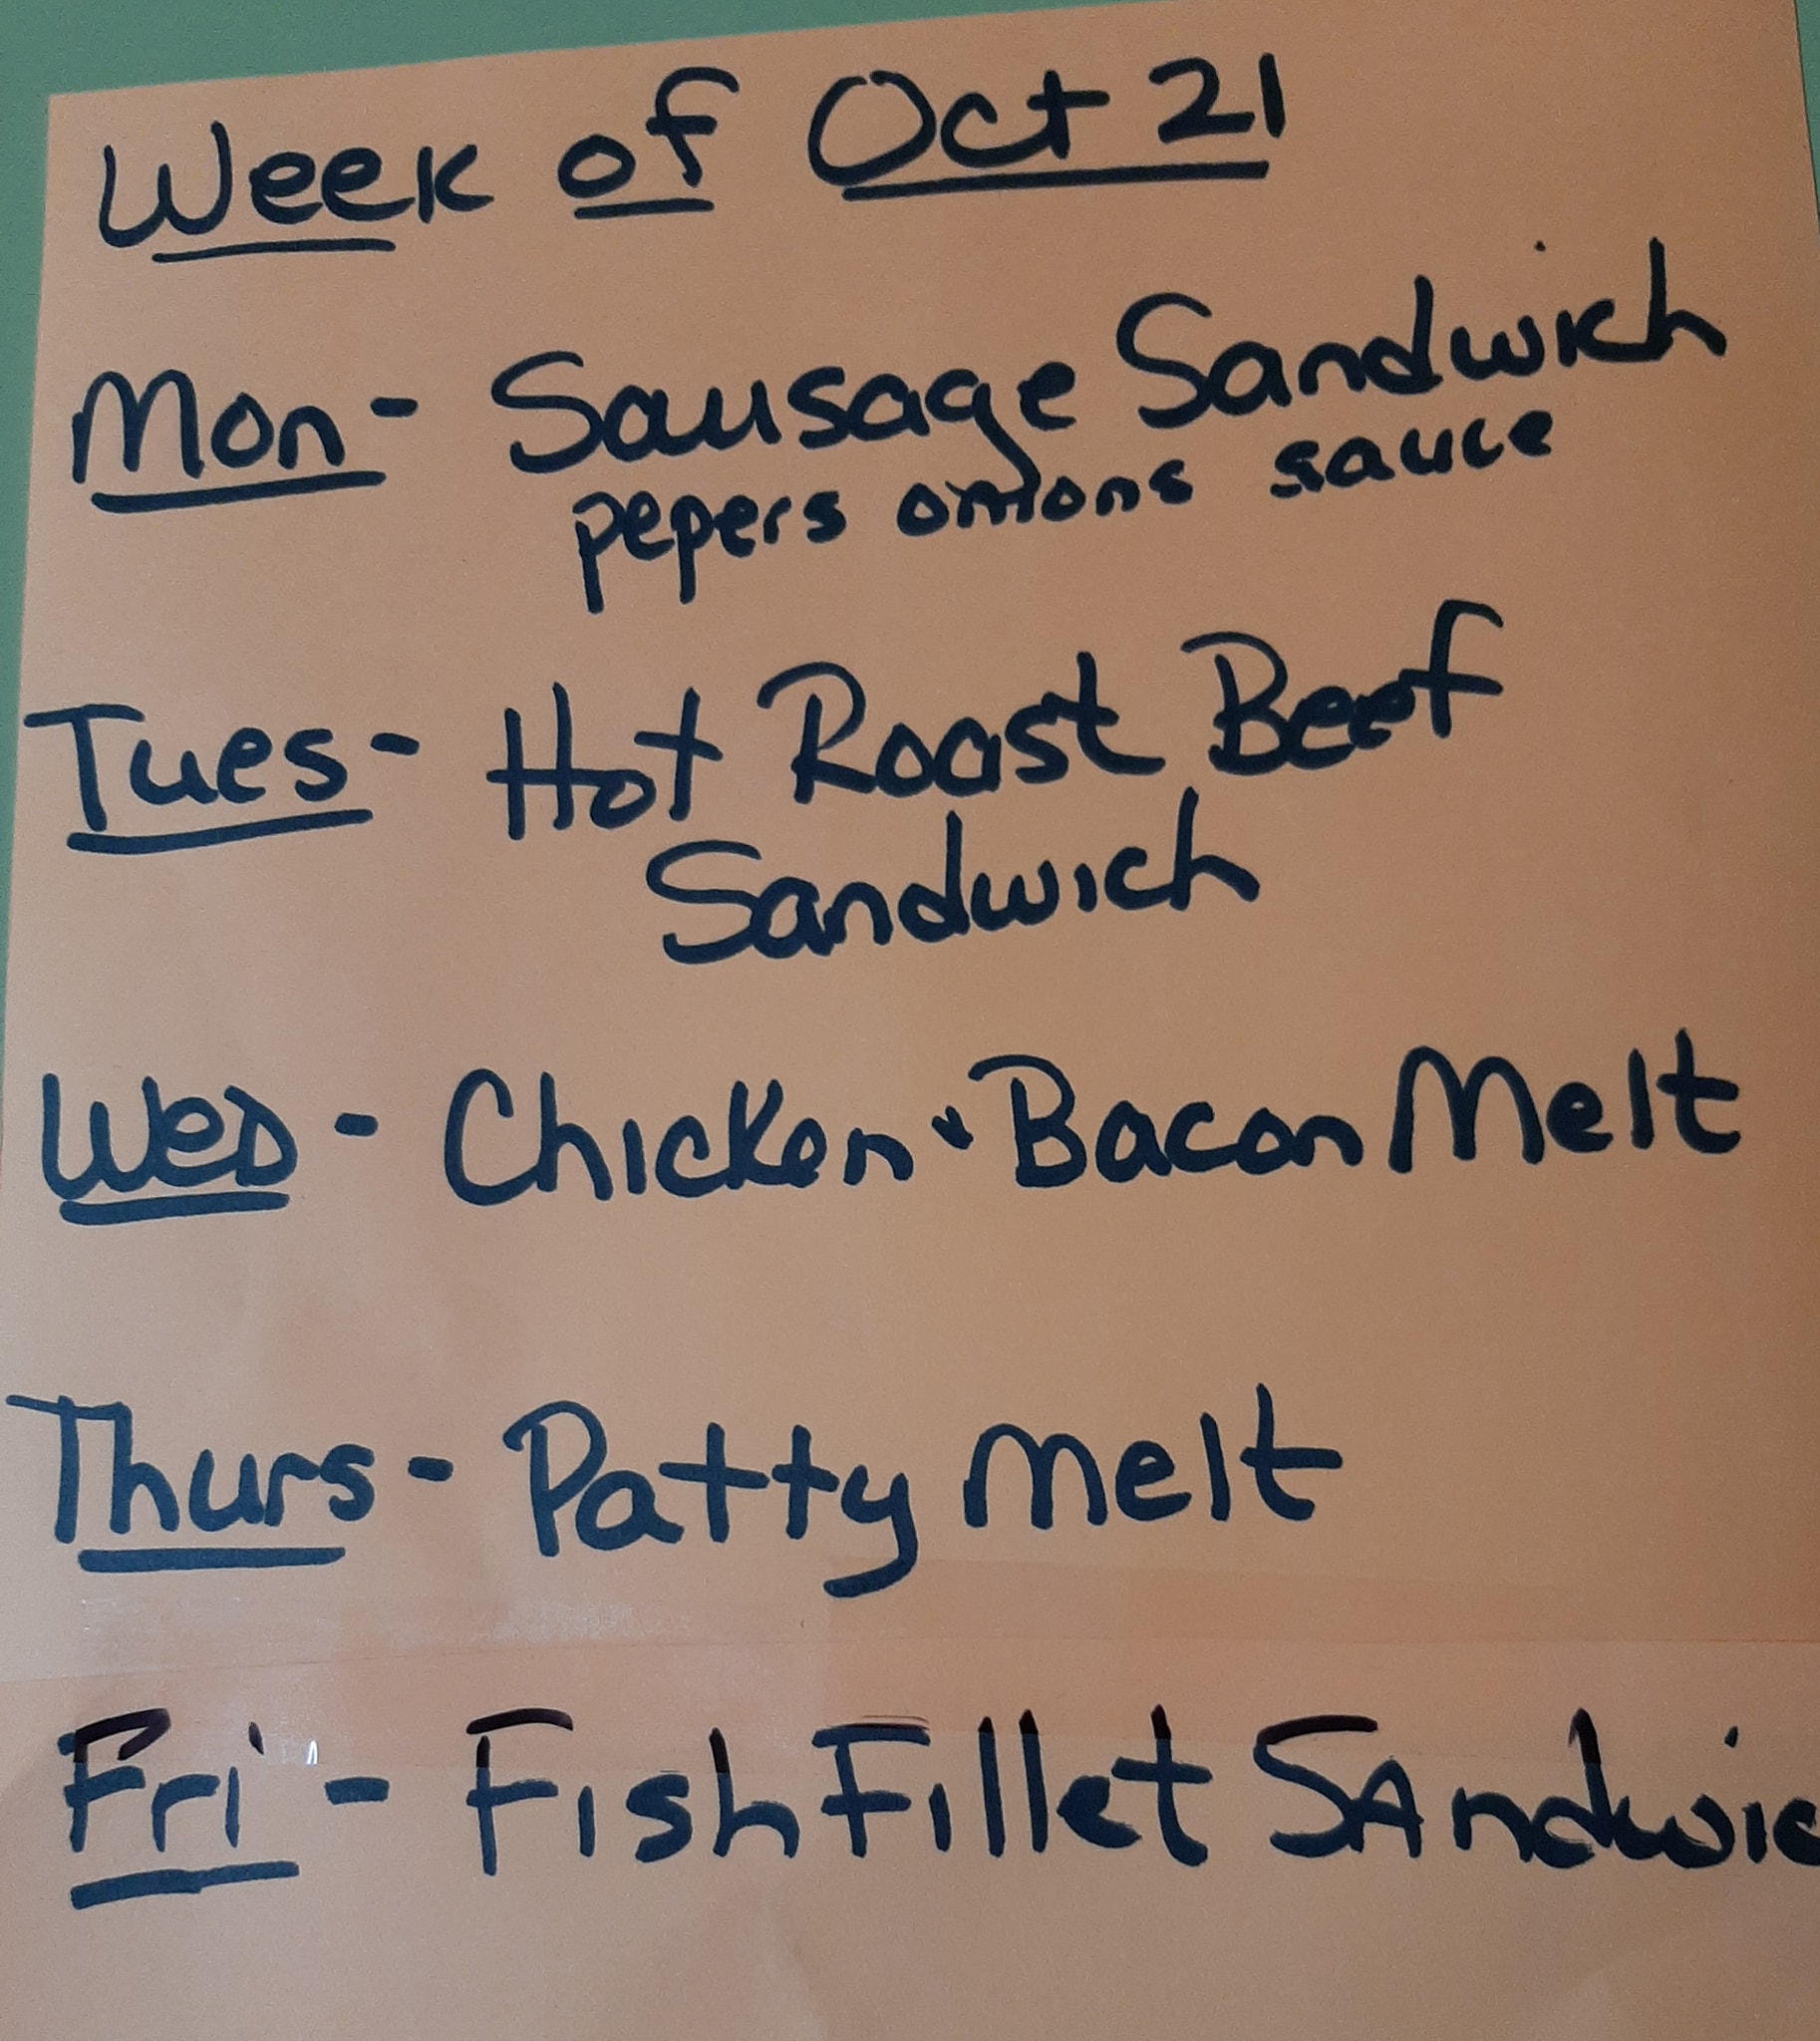 Week of Oct 21
Mon- Sausage Sandwich
pepers onions sauce
Tues- Hot Roast Beef
Sandwich
Wed - Chicken & Bacon Melt
Thurs- Patty Melt
Fri - Fish Fillet SAndwic